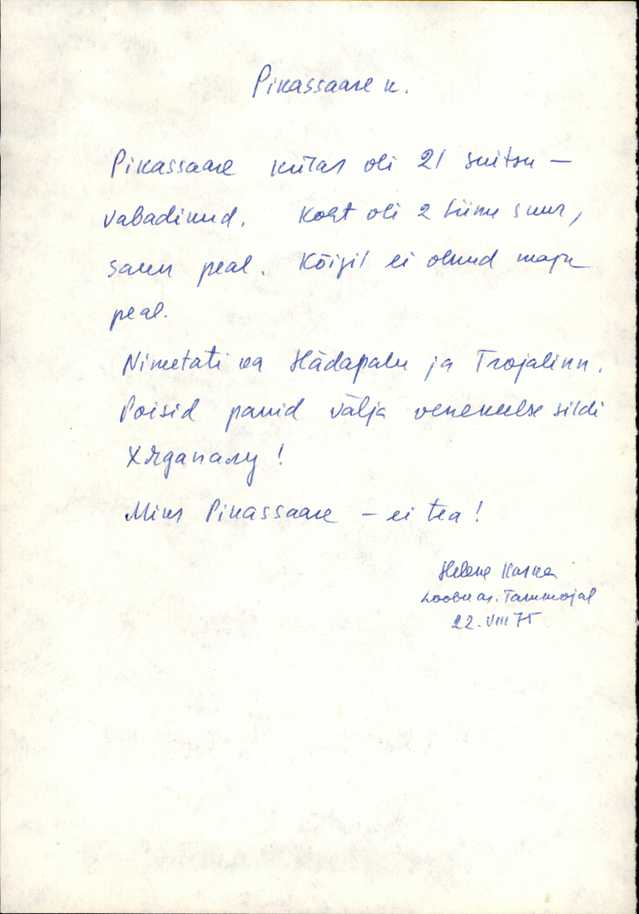 Pikassaare k.
Pikassaare külas oli 21 suitsu –
vabadikud. Koht oli 2 tiinu suur,
saun peal. Kõigil ei olnud maja
peal.
Nimetati ka Hädapalu ja Trojalinn.
Poisid panid välja venekeelse sildi
Хядапалу!
Miks Pikassaare – ei tea!
Helene
Loobu as. Tammojal
22. VIII 75